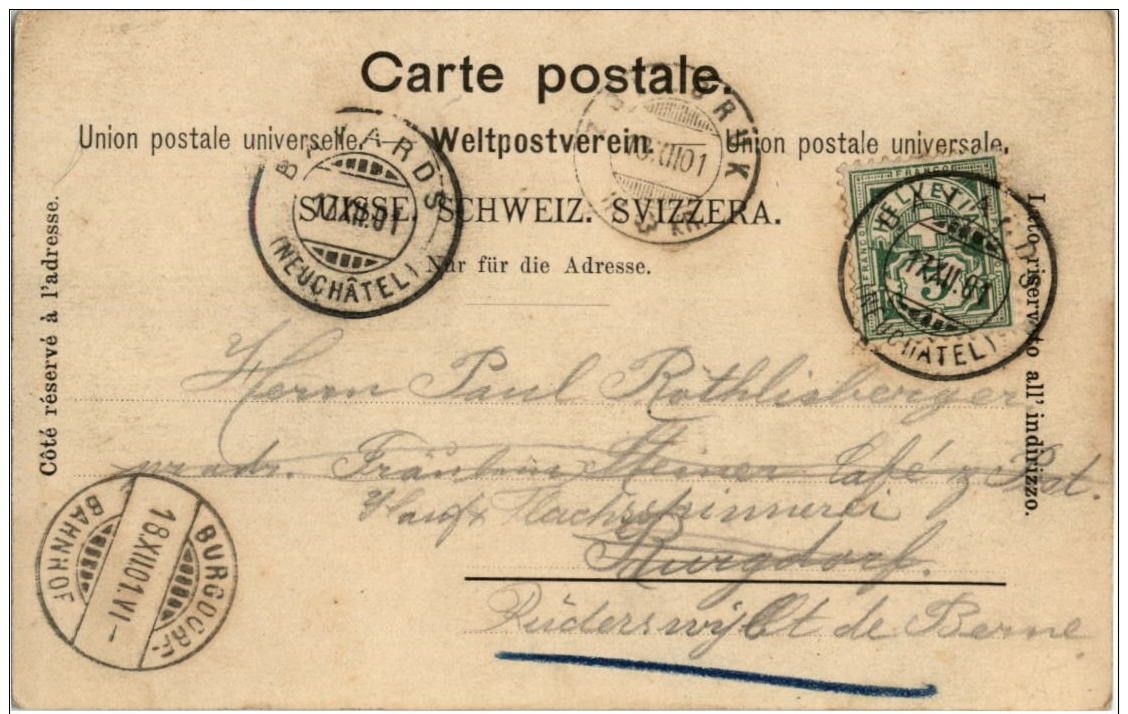 Carte postale.
Union postale universelle. — Weltpostverein. — Union postale universale.
SUISSE. SCHWEIZ. SVIZZERA.
Nur für die Adresse.
Côté réservé à l'adresse.
Lato riservato all' indirizzo.
BAYARDS
17.XII.01
(NEUCHÂTEL)
BRUK
XII 01
HELVETIA
FRANCO
FRANCO
5
BAYARDS
17.XII.01
(NEUCHÂTEL)
Herrn Paul Röthlisberger
pr. adr. Fräulein Steiner Café z. Post.
Flachsspinnerei
Burgdorf.
Rüderswyl Ct de Berne
BURGDORF-
18.XII.01.VI-
BAHNHOF